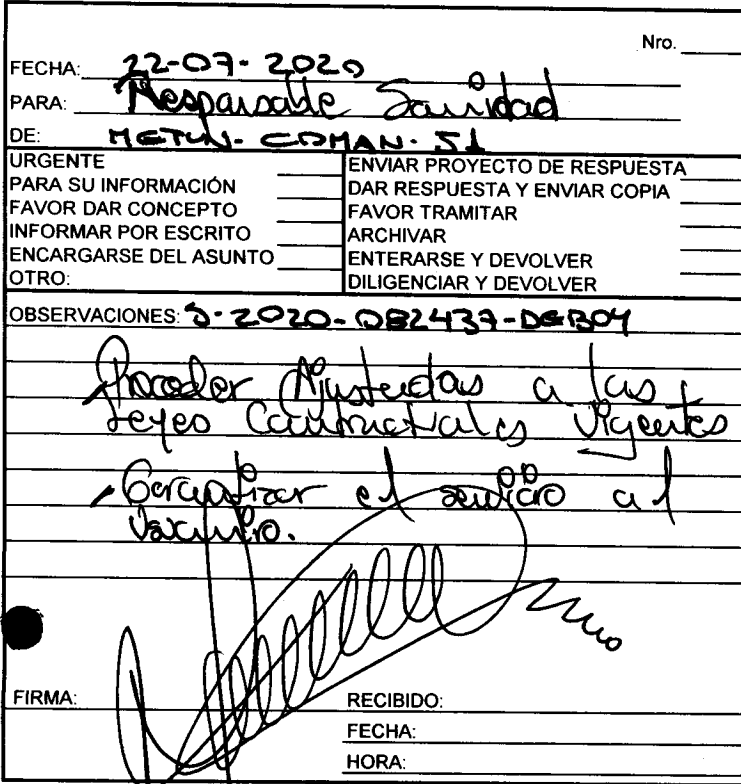 Nro.
FECHA: 22-07-2020
PARA: Responsable Sanidad
DE: METUN-COMAN-S1
URGENTE
PARA SU INFORMACIÓN
FAVOR DAR CONCEPTO
INFORMAR POR ESCRITO
ENCARGARSE DEL ASUNTO
OTRO:
ENVIAR PROYECTO DE RESPUESTA
DAR RESPUESTA Y ENVIAR COPIA
FAVOR TRAMITAR
ARCHIVAR
ENTERARSE Y DEVOLVER
DILIGENCIAR Y DEVOLVER
OBSERVACIONES: S-2020-082437-DEBOY
Proceder Ajustados a las
Leyes Contractuales Vigentes
Garantizar el servicio al
Usuario.
FIRMA:
RECIBIDO:
FECHA:
HORA: